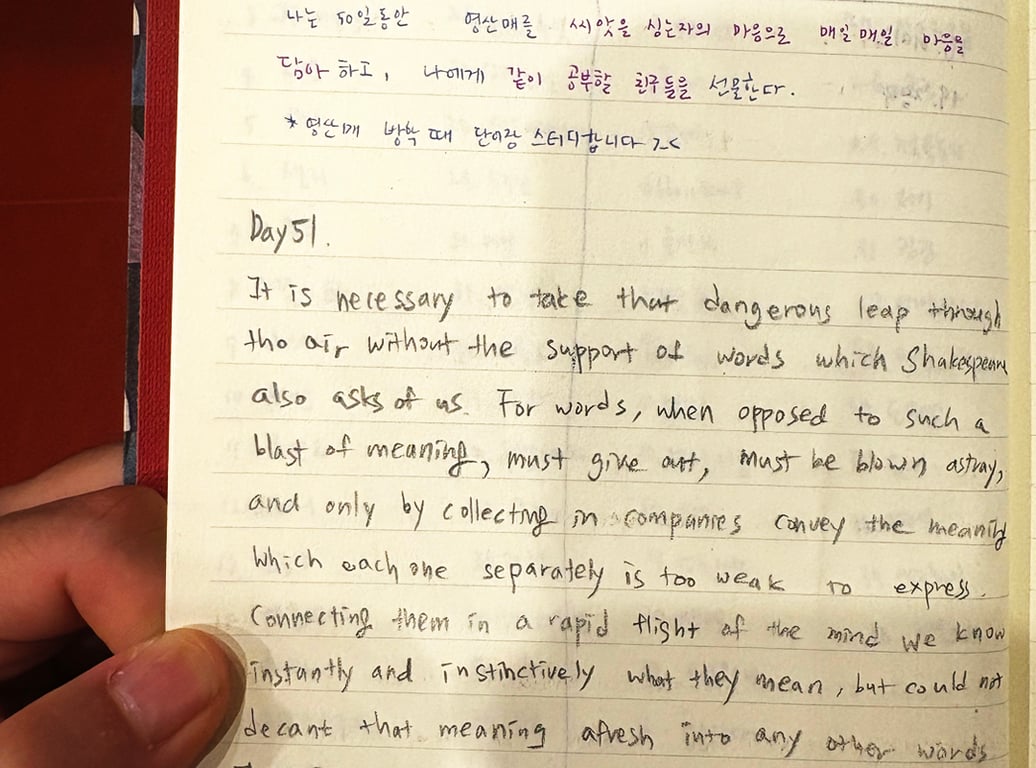 나는 50일동안 영산매를 씨앗을 심는자의 마음으로 매일매일 마음을
담아 하고, 나에게 같이 공부할 친구들을 선물한다.
*영산매 방학 때 단어장 스터디합니다 >.<
Day 51.
It is necessary to take that dangerous leap through
tho air without the support of words which Shakespeare
also asks of us. For words, when opposed to such a
blast of meaning, must give out, must be blown astray,
and only by collecting in companies convey the meaning
which each one separately is too weak to express.
Connecting them in a rapid flight of the mind we know
instantly and instinctively what they mean, but could not
decant that meaning afresh into any other words